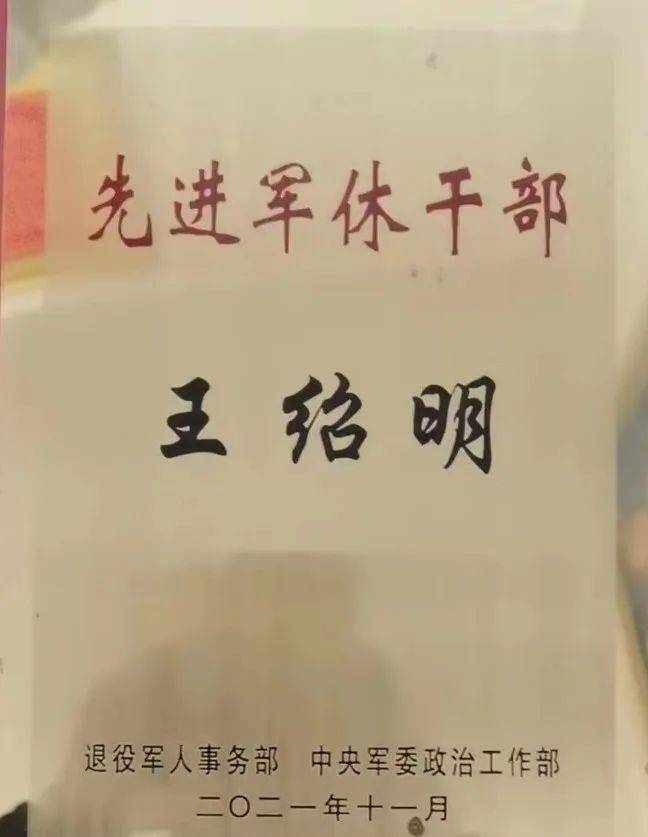 先进军休干部
王绍明
退役军人事务部 中央军委政治工作部
二〇二一年十一月